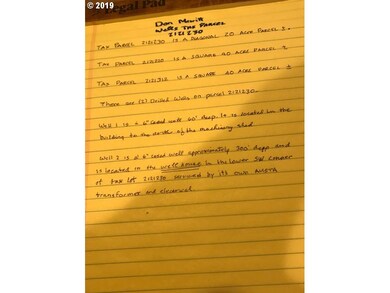 © 2019
Legal Pad
Don Merit
Wells Tax Parcel
2121230
Tax Parcel 2121230 is a diagonal 20 acre parcel ±.
Tax Parcel is a square 40 acre parcel ±
Tax Parcel 2121312 is a square 40 acre parcel ±
There are (2) Drilled wells on parcel 2121230.
Well 1 is a 6" cased well 60' deep. It is located in the
building to the north of the machinery shed.
Well 2 is a 6" cased well approximately 300' deep and
is located in the well house in the lower SW corner
of tax lot 2121230 serviced by its own
transformer and electrical.